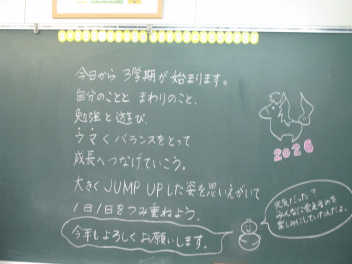 今日から 3学期が 始まります。
自分のことと まわりのこと、
勉強と遊び、
ウマくバランスをとって
成長へつなげていこう。
大きく JUMP UPした姿を思いえがいて
1日1日をつみ重ねよう。
今年もよろしくお願いします。
2026
元気だった?
みんなに会えるのを
楽しみにしていたんだよ。